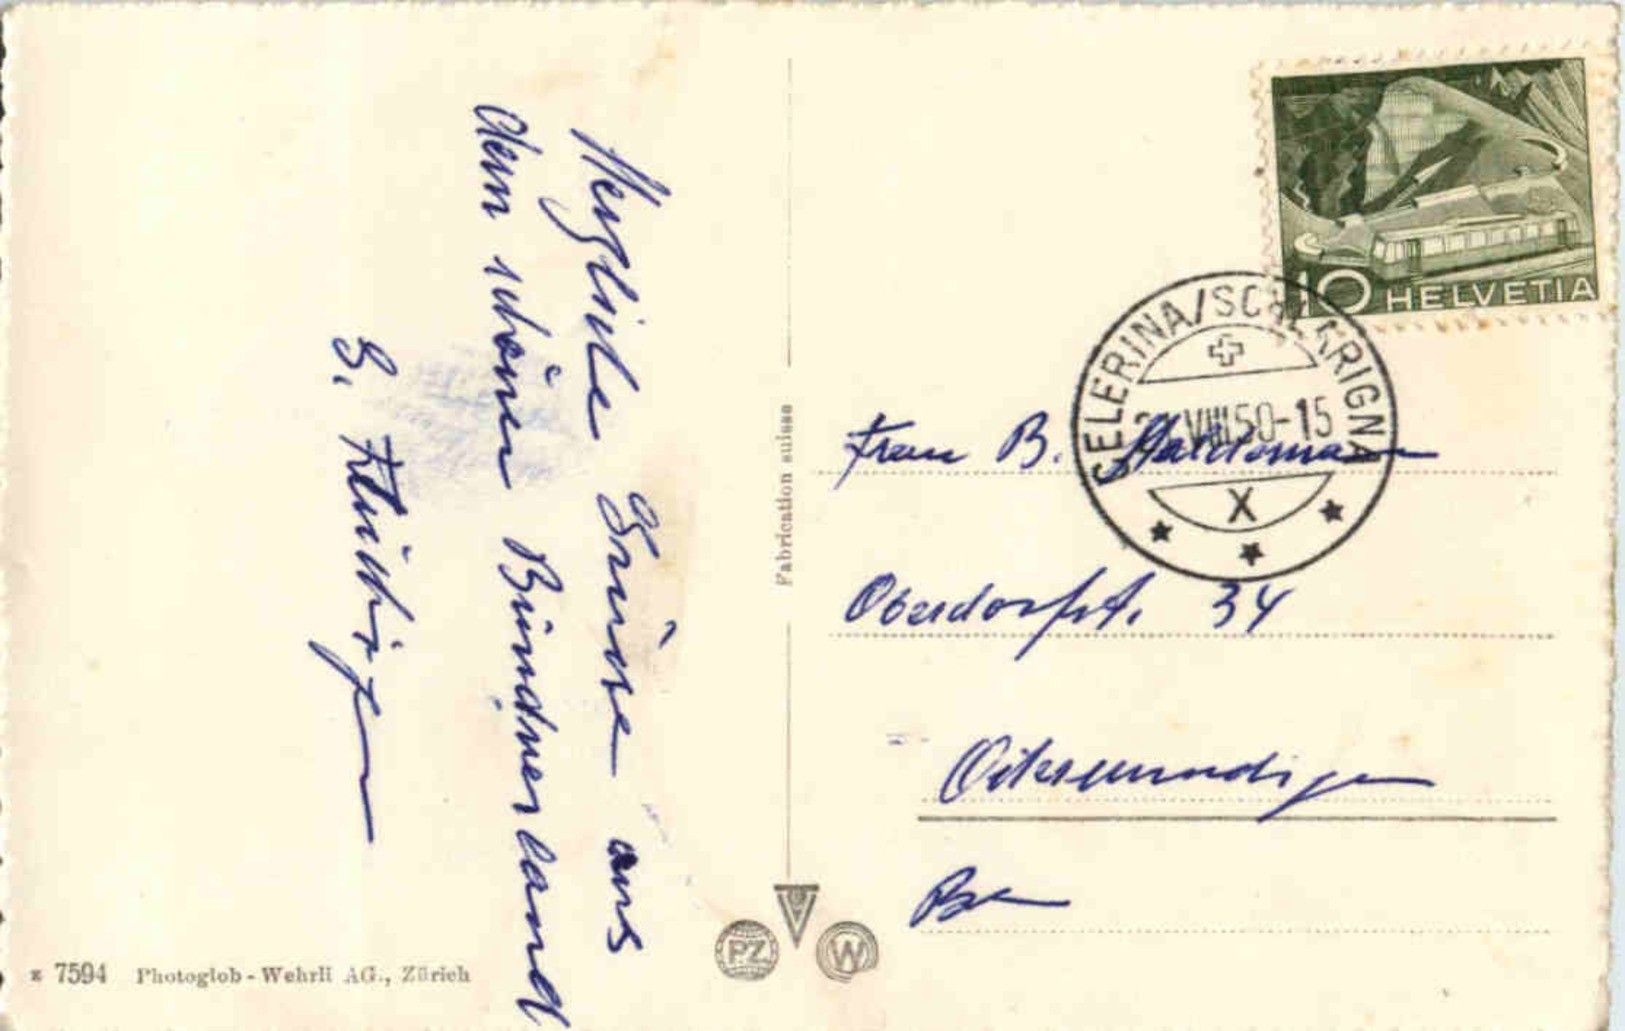 Herzliche Grüsse aus
dem schönen Bündnerland
Fabrication suisse
10 HELVETIA
CELERINA/SCHLARIGNA
VIII.50-15
X
Frau B.
Oberdorfst. 34
Ostermundigen
Bern
PZ
W
z 7594 Photoglob-Wehrli AG., Zürich